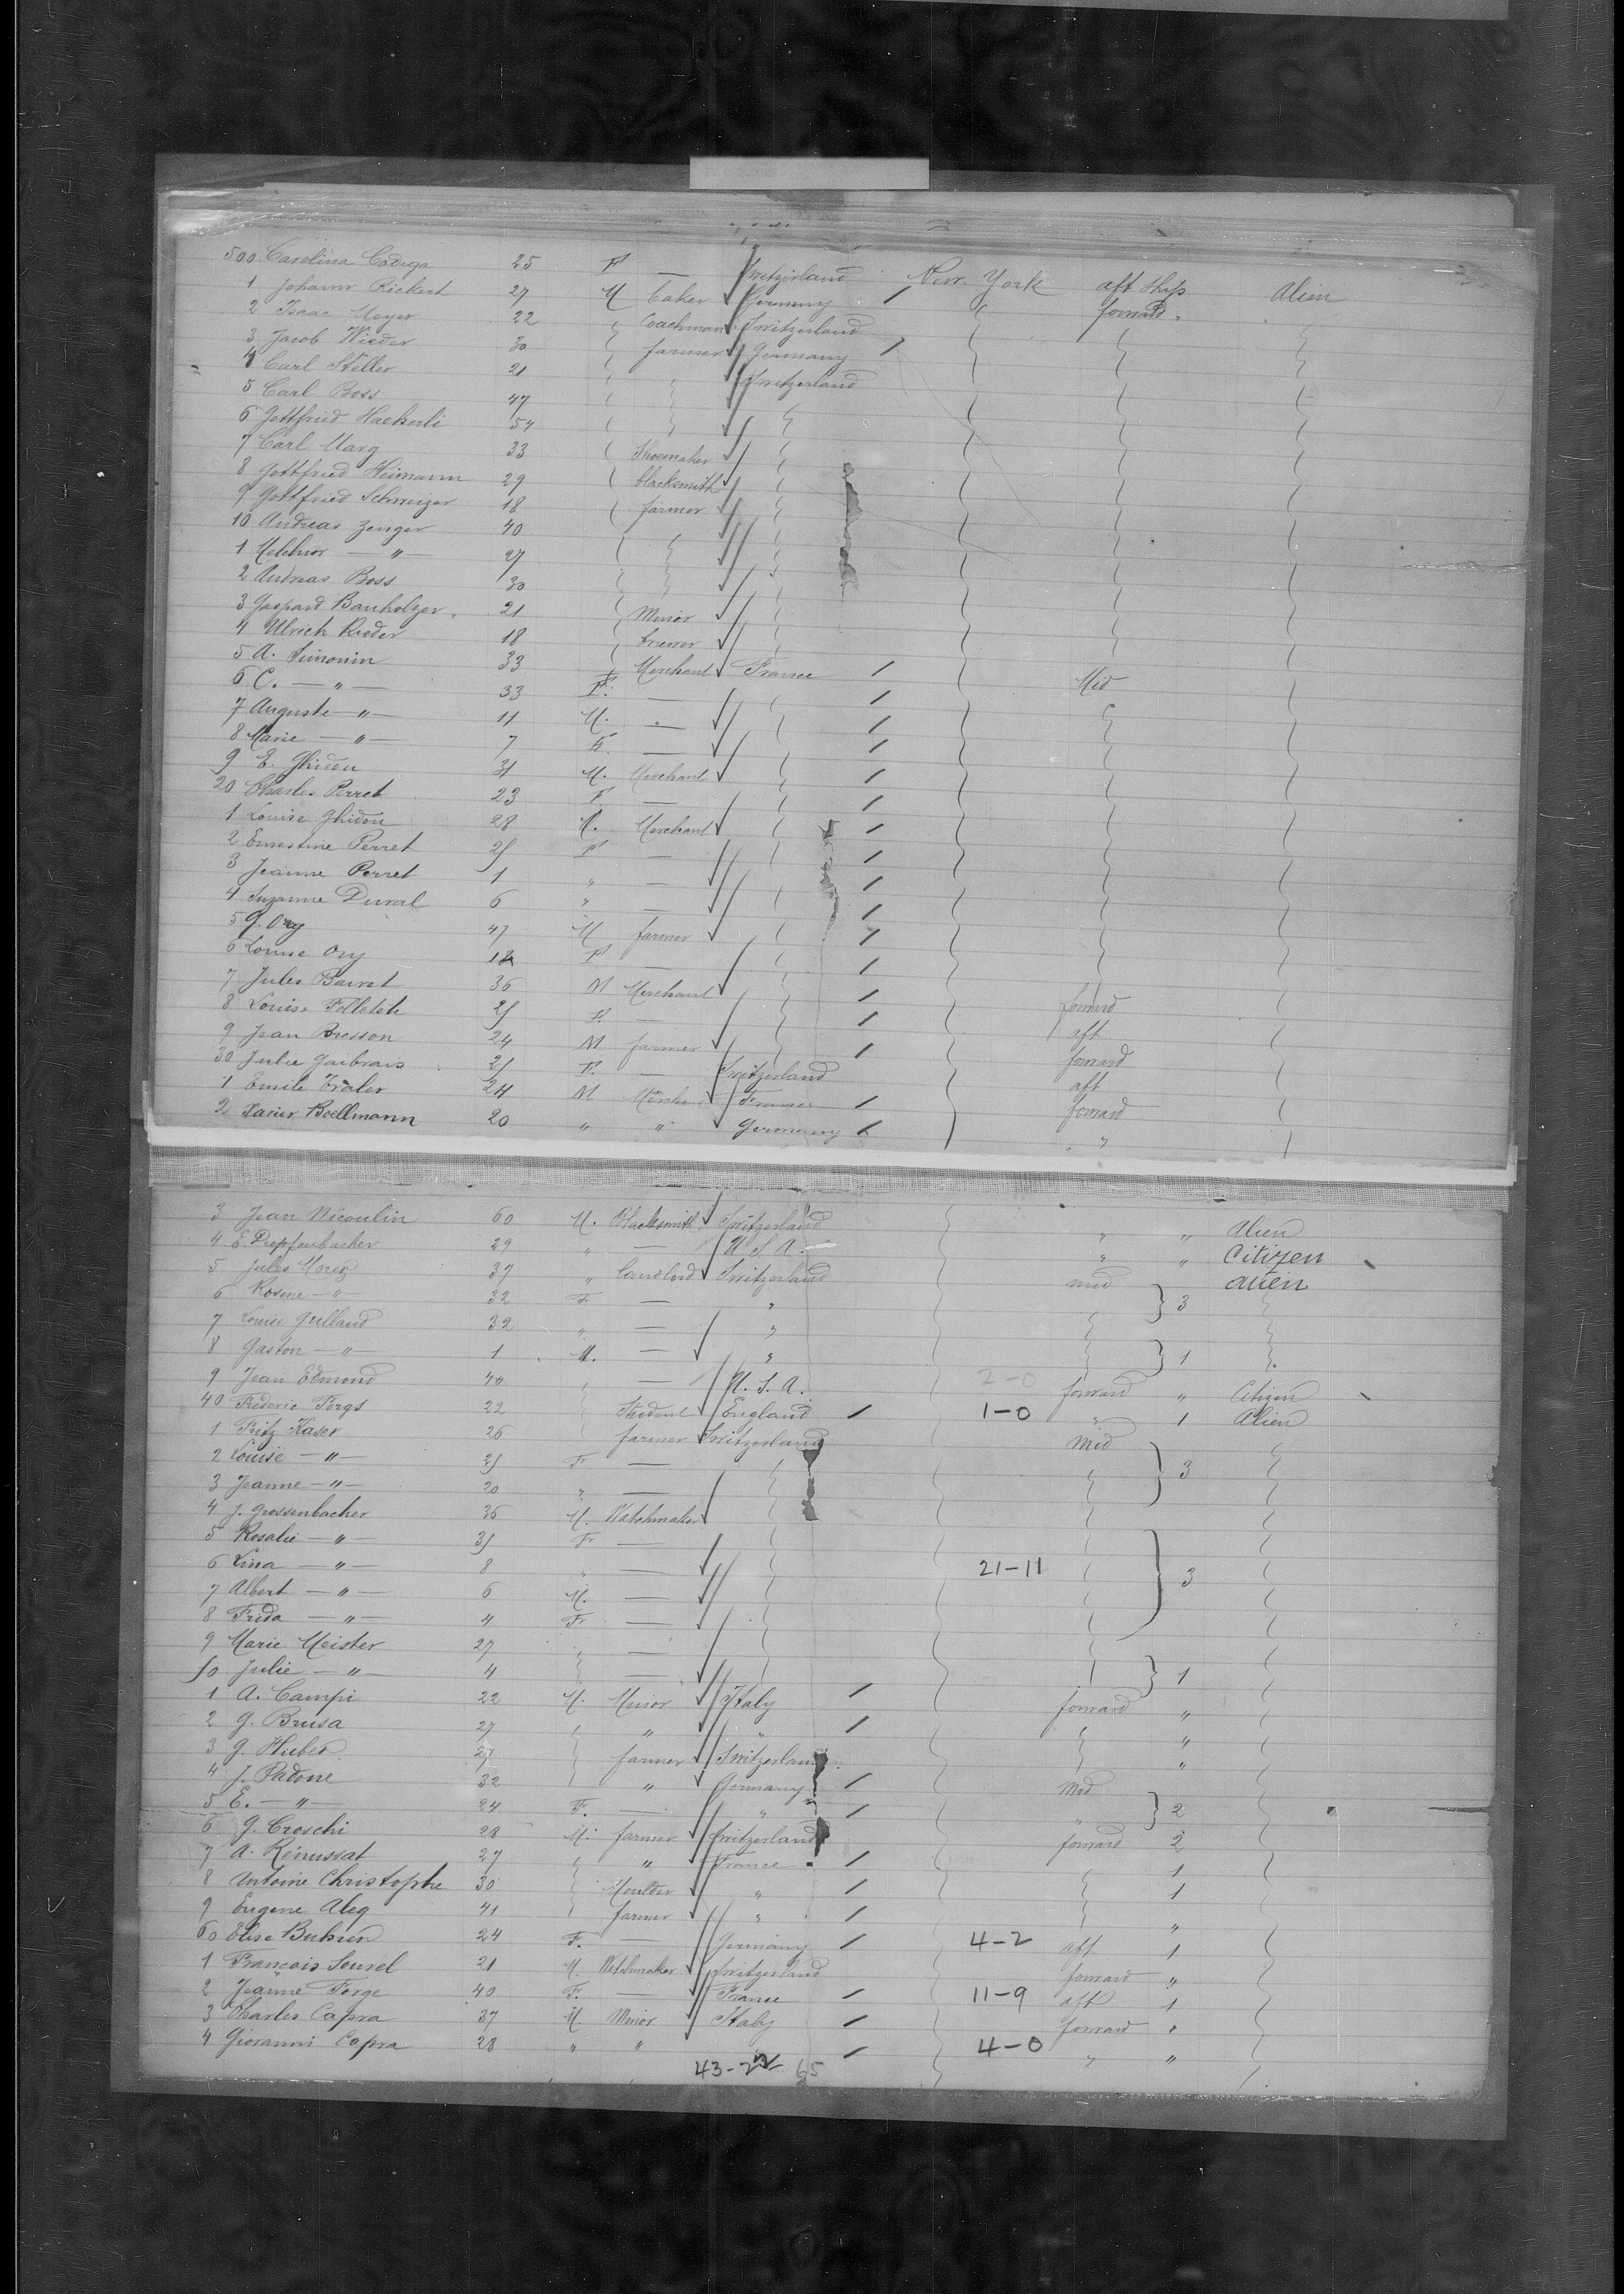 500 Carolina Codiga 25 F — Switzerland New York aft ship Alien
1 Johann Rickert 27 M baker Germany / " forward.
2 Isaac Meyer 22 Coachman Switzerland
3 Jacob Wieder 30 farmer Germany /
4 Carl Steller 21 Switzerland
5 Carl Boss 47
6 Gottfried Haeberli 54
7 Carl Marg 33 Shoemaker
8 Gottfried Heimann 29 blacksmith
9 Gottfried Schweizer 18 farmer
10 Andreas Zenger 40
1 Melchior — " — 27
2 Andreas Boss 30
3 Gaspard Banholzer. 21 Minor
4 Ulrich Rieder 18 brewer
5 A. Simonin 33 Merchant France / Mid
6 C. — " — 33 F. — /
7 Auguste — " — 11 M. — /
8 Marie — " — 7 F. — /
9 E. Ghidou 31 M. Merchant /
20 Charles Perret 23 F. — /
1 Louise Ghidou 28 M. Merchant /
2 Ernestine Perret 25 F — /
3 Jeanne Perret 1 " — /
4 Suzanne Duval 6 " — /
5 J. Ory 47 M farmer /
6 Louise Ory 18 F — /
7 Jules Bairet 36 M Merchant / forward
8 Louise 25 F. — / aft
9 Jean Bresson 24 M farmer / forward
30 Julie Gaibrois 25 F. — Switzerland aft
1 Emile Traler 24 M Merchant France / forward
2 Xavier Boellmann 20 " " Germany / "
3 Jean Nicoulin 60 M. Blacksmith Switzerland " " Alien
4 E. Diepfenbacher 29 " — U S A. " " Citizen
5 Jules Moriz 37 " Landlord Switzerland mid alien
6 Rosine — " — 32 F — " } 3
7 Louise Gulland 32 " — "
8 Gaston — " — 1 M. — " } 1
9 Jean Edmond 40 — U. S. A. 2-0 forward " Citizen
40 Frederic Firgs 22 Student England / 1-0 " 1 Alien
1 Fritz Kaser 26 farmer Switzerland Mid
2 Louise — " — 25 F — } 3
3 Jeanne — " — 20 " —
4 J. Grossenbacher 36 M. Watchmaker
5 Rosalie — " — 35 F —
6 Lina — " — 8 " — 21-11 } 3
7 Albert — " — 6 M. —
8 Frida — " — 4 F —
9 Marie Meister 27 " —
50 Julie — " — 4 — } 1
1 A. Campi 22 M. Minor Italy / forward "
2 G. Brusa 27 " " / "
3 G. Huber 27 farmer Switzerland "
4 J. Padone 32 " Germany / Mid
5 E. — " — 24 F. — " / " } 2
6 G. Croschi 28 M. farmer Switzerland forward 2
7 A. Rénussat 27 " " France / 1
8 Antoine Christophe 30 Moulder " / 1
9 Eugene Aleg 41 farmer " / "
60 Elise Buhrer 24 F. — Germany / 4-2 aft 1
1 François Sourel 21 M. Watchmaker Switzerland forward "
2 Jeanne Forge 40 F. — France / 11-9 aft 1
3 Charles Capra 37 M. Minor Italy / forward "
4 Giovanni Capra 28 " " / 4-0 " "
43-22 65